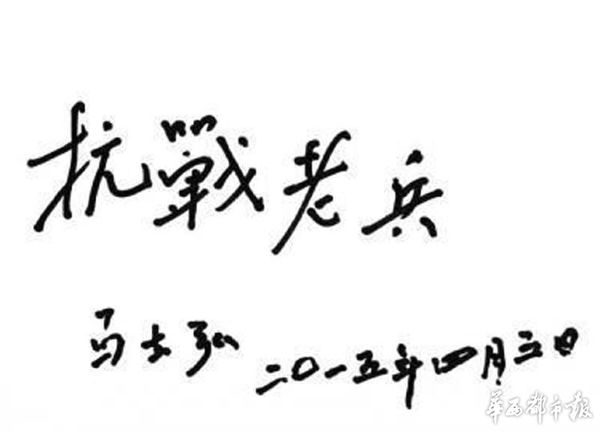 抗戰老兵
马士弘 二〇一五年四月三日
华西都市报